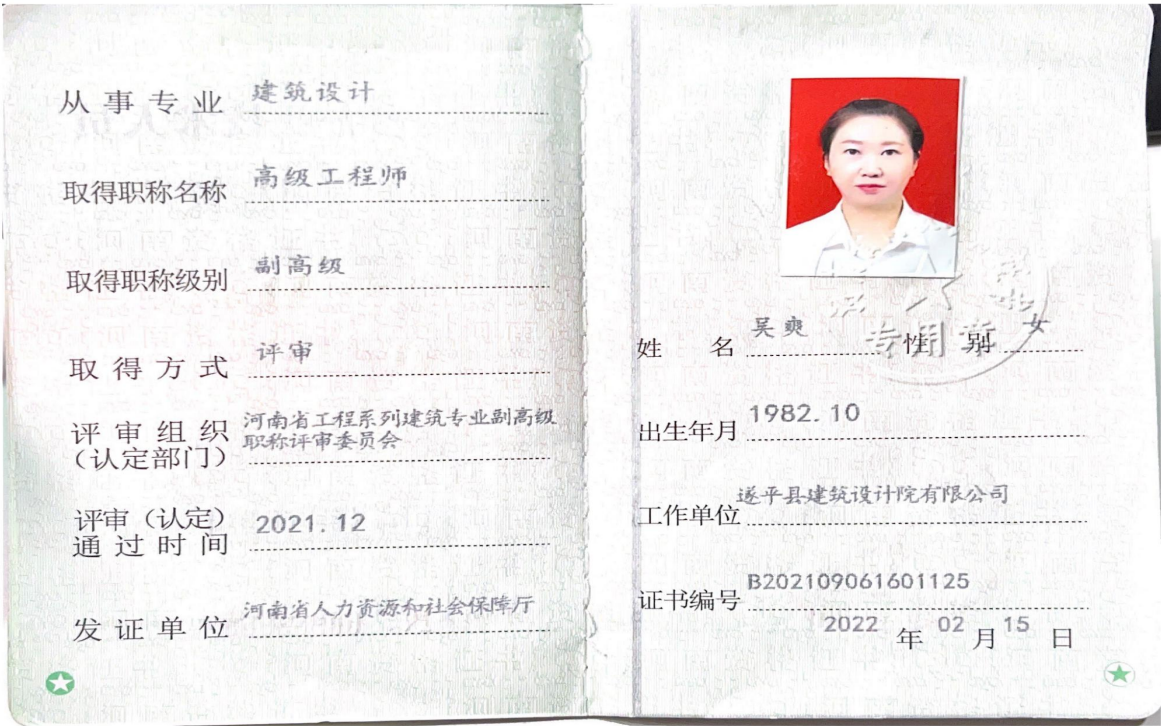 从事专业 建筑设计
取得职称名称 高级工程师
取得职称级别 副高级
取得方式 评审
评审组织 河南省工程系列建筑专业副高级
(认定部门) 职称评审委员会
评审(认定) 2021.12
通过时间
发证单位 河南省人力资源和社会保障厅
专用章
姓名 吴爽 性别 女
出生年月 1982.10
工作单位 遂平县建筑设计院有限公司
证书编号 B202109061601125
2022 年 02 月 15 日